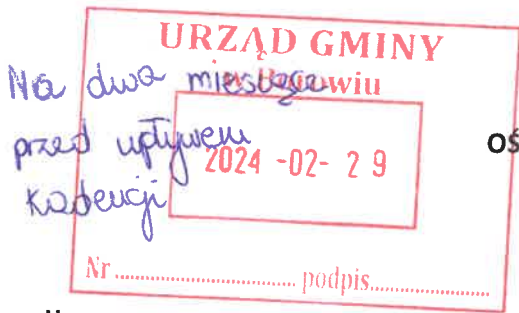 URZĄD GMINY
wiu
Na dwa miesiące
przed upływem
kadencji
2024 -02- 29
Nr ........................ podpis........................
oś